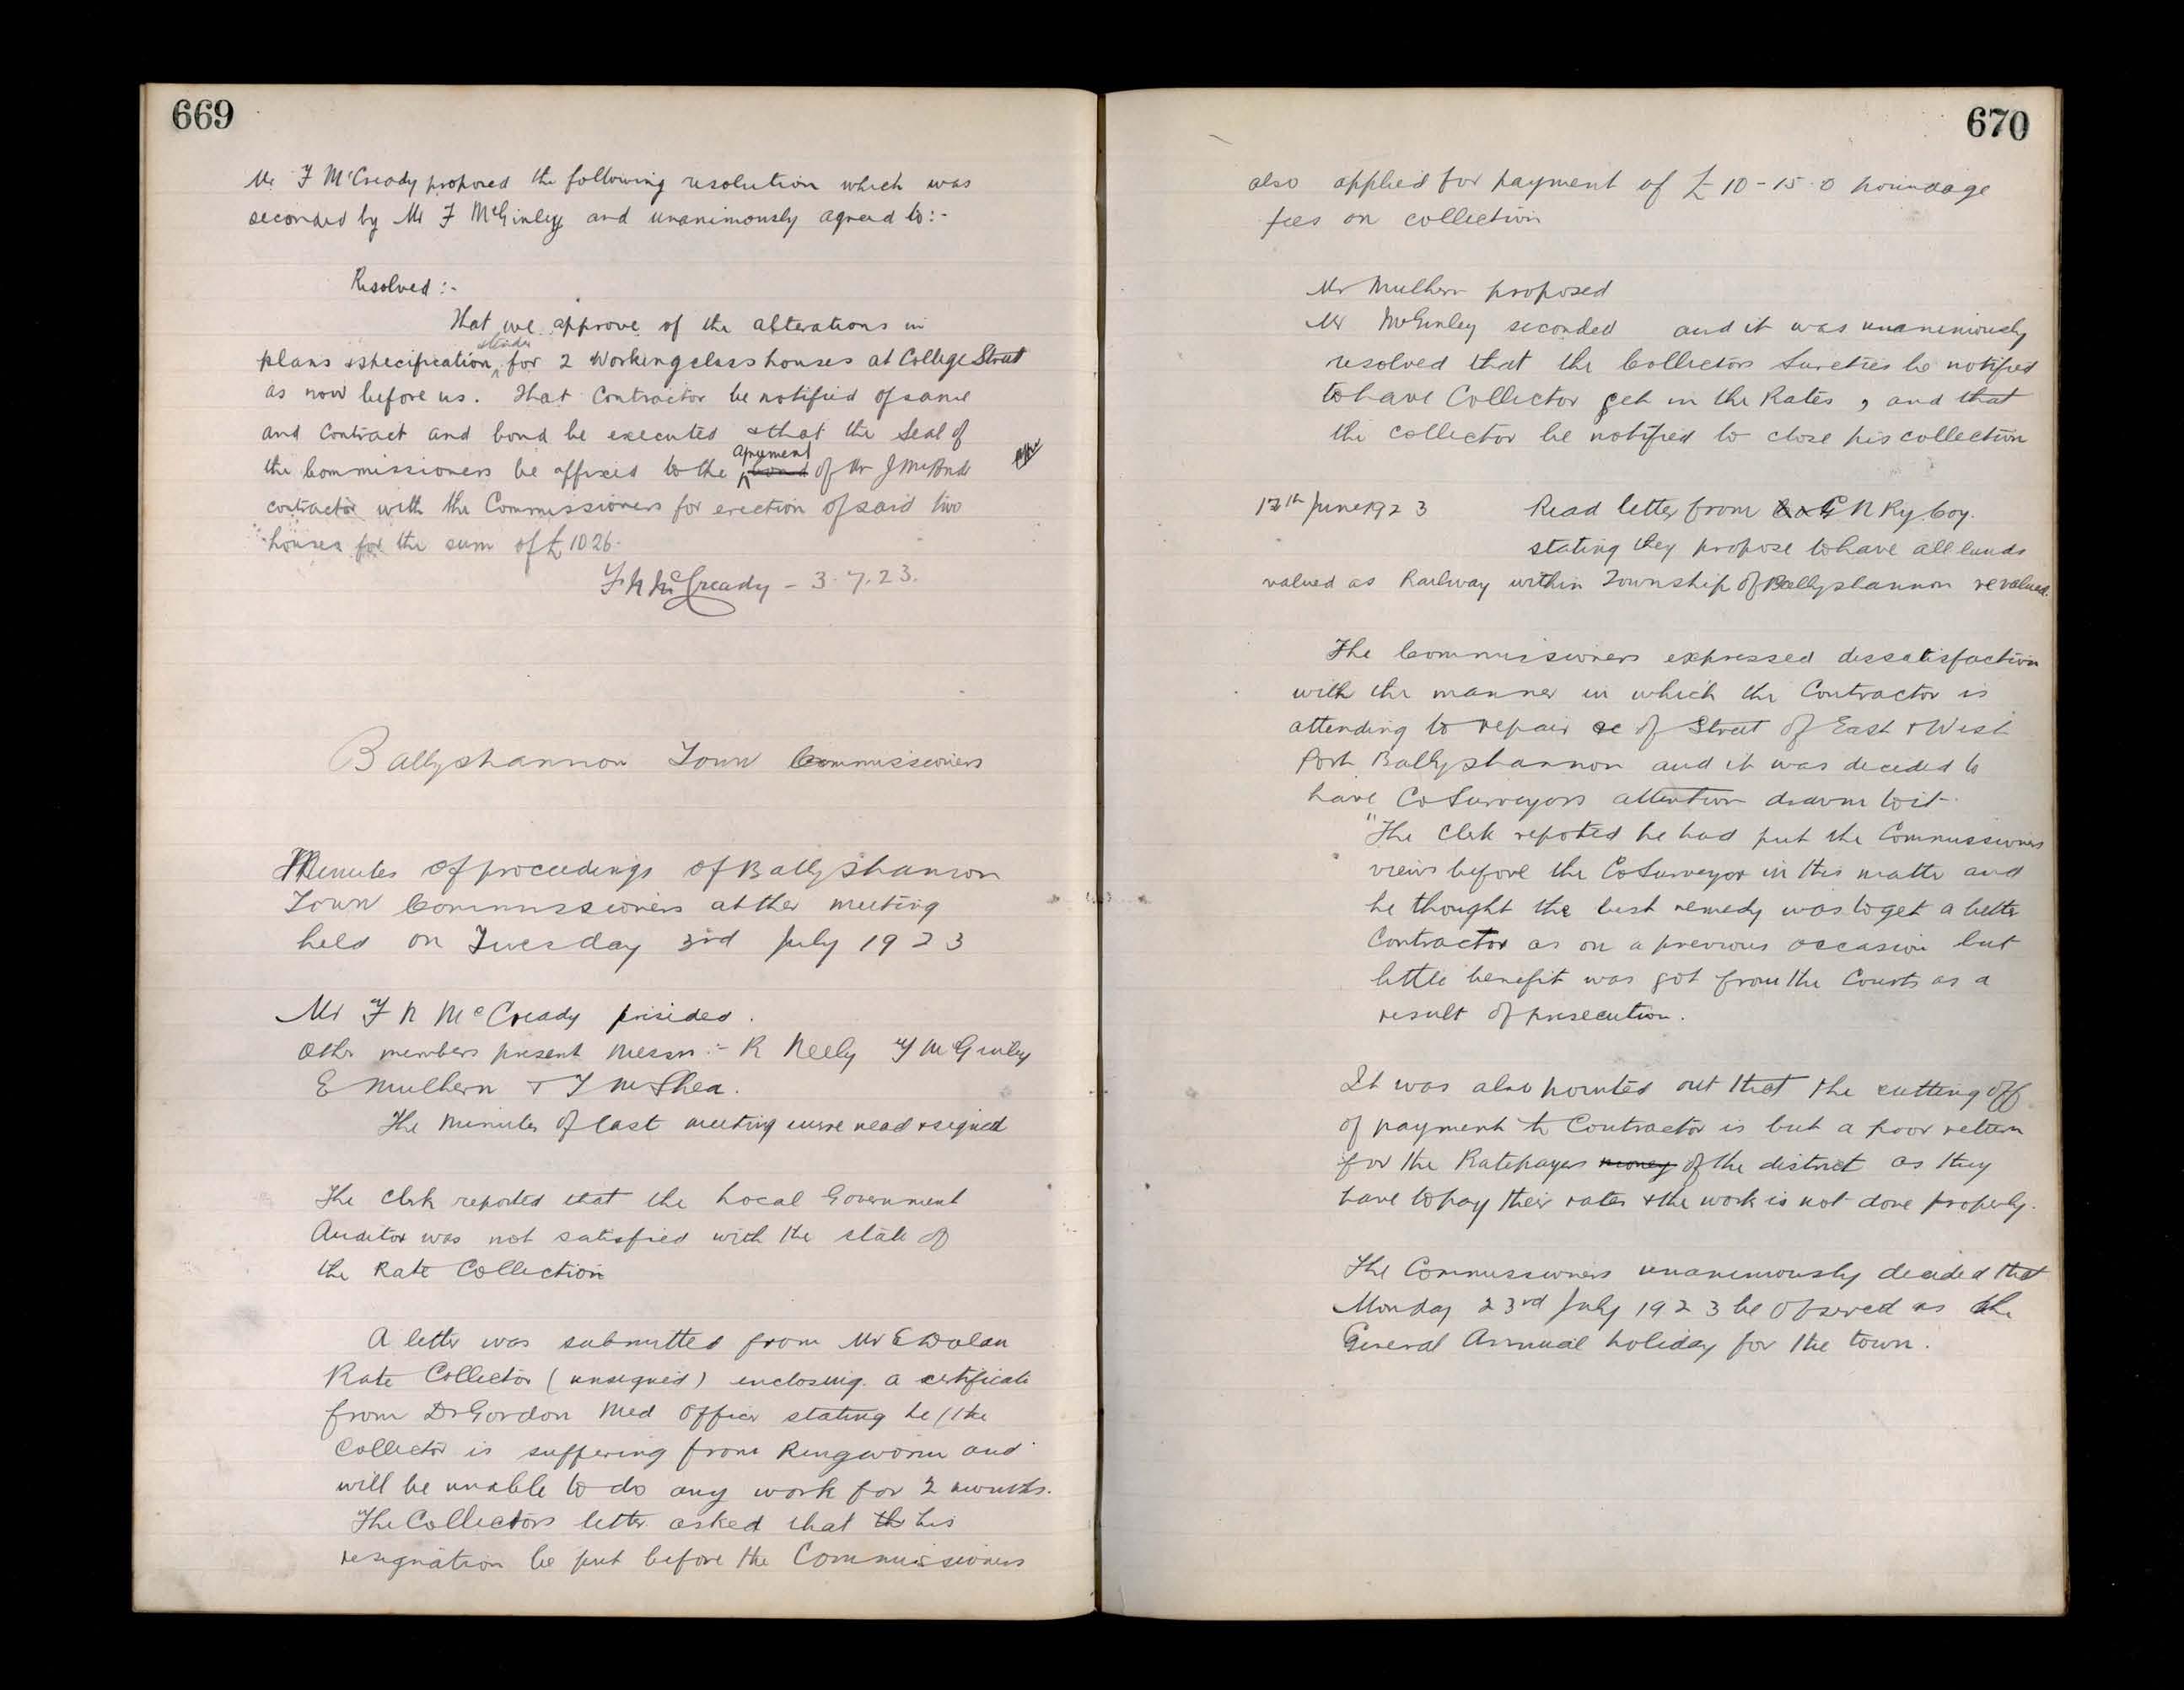 669
Mr F McCready proposed the following resolution which was
seconded by Mr F McGinley and unanimously agreed to:-
Resolved:-
That we approve of the alterations in
plans & specification & tender for 2 Working class houses at College Street
as now before us. That Contractor be notified of same
and Contract and bond be executed & that the Seal of
the Commissioners be affixed to the bond Agreement of Mr J
contractor with the Commissioners for erection of said two
houses for the sum of £1026.
F R McCready - 3.7.23.
Ballyshannon Town Commissioners
Minutes of proceedings of Ballyshannon
Town Commissioners at ther meeting
held on Tuesday 3rd July 1923
Mr F R McCready presided.
Other members present Messrs:- R Neely F McGinley
E Mulhern & T McShea.
The minutes of last meeting were read & signed
The Clerk reported that the Local Government
Auditor was not satisfied with the state of
the Rate Collection
A letter was submitted from Mr E Dolan
Rate Collector (unsigned) enclosing a certificate
from Dr Gordon Med Officer stating he (the
Collector is suffering from Ringworm and
will be unable to do any work for 2 months.
The Collectors letter asked that th his
resignation be put before the Commissioners
670
also applied for payment of £10-15.0 poundage
fees on collection
Mr Mulhern proposed
Mr McGinley seconded and it was unanimously
resolved that the Collectors Sureties be notified
to have Collector get in the Rates, and that
the collector be notified to close his collection
12th June 1923 Read letter from G N Ry Coy.
stating they propose to have all lands
valued as Railway within Township of Ballyshannon revalued.
The Commissioners expressed dissatisfaction
with the manner in which the Contractor is
attending to repair &c of Street of East & West
Port Ballyshannon and it was decided to
have Co Surveyors attention drawn to it.
"The Clerk reported he had put the Commissioners
views before the Co Surveyor in this matter and
he thought the best remedy was to get a better
Contractor as on a previous occasion but
little benefit was got from the Courts as a
result of prosecution.
It was also pointed out that the cutting off
of payment to Contractor is but a poor return
for the Ratepayers money of the district as they
have to pay their rates & the work is not done properly.
The Commissioners unanimously decided that
Monday 23rd July 1923 be observed as the
General Annual holiday for the town.